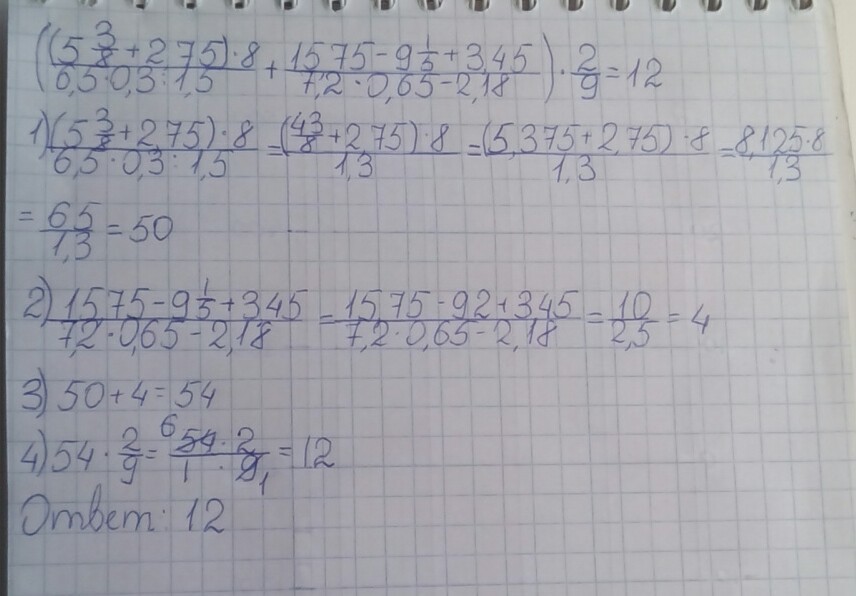 (((5 3/8 + 2,75) · 8)/(6,5 · 0,3 : 1,5) + (15,75 - 9 1/5 + 3,45)/(7,2 · 0,65 - 2,18)) · 2/9 = 12
1) ((5 3/8 + 2,75) · 8)/(6,5 · 0,3 : 1,5) = ((43/8 + 2,75) · 8)/1,3 = ((5,375 + 2,75) · 8)/1,3 = (8,125 · 8)/1,3
= 65/1,3 = 50
2) (15,75 - 9 1/5 + 3,45)/(7,2 · 0,65 - 2,18) = (15,75 - 9,2 + 3,45)/(7,2 · 0,65 - 2,18) = 10/2,5 = 4
3) 50 + 4 = 54
4) 54 · 2/9 = (6 54 · 2)/(1 · 9 1) = 12
Ответ: 12